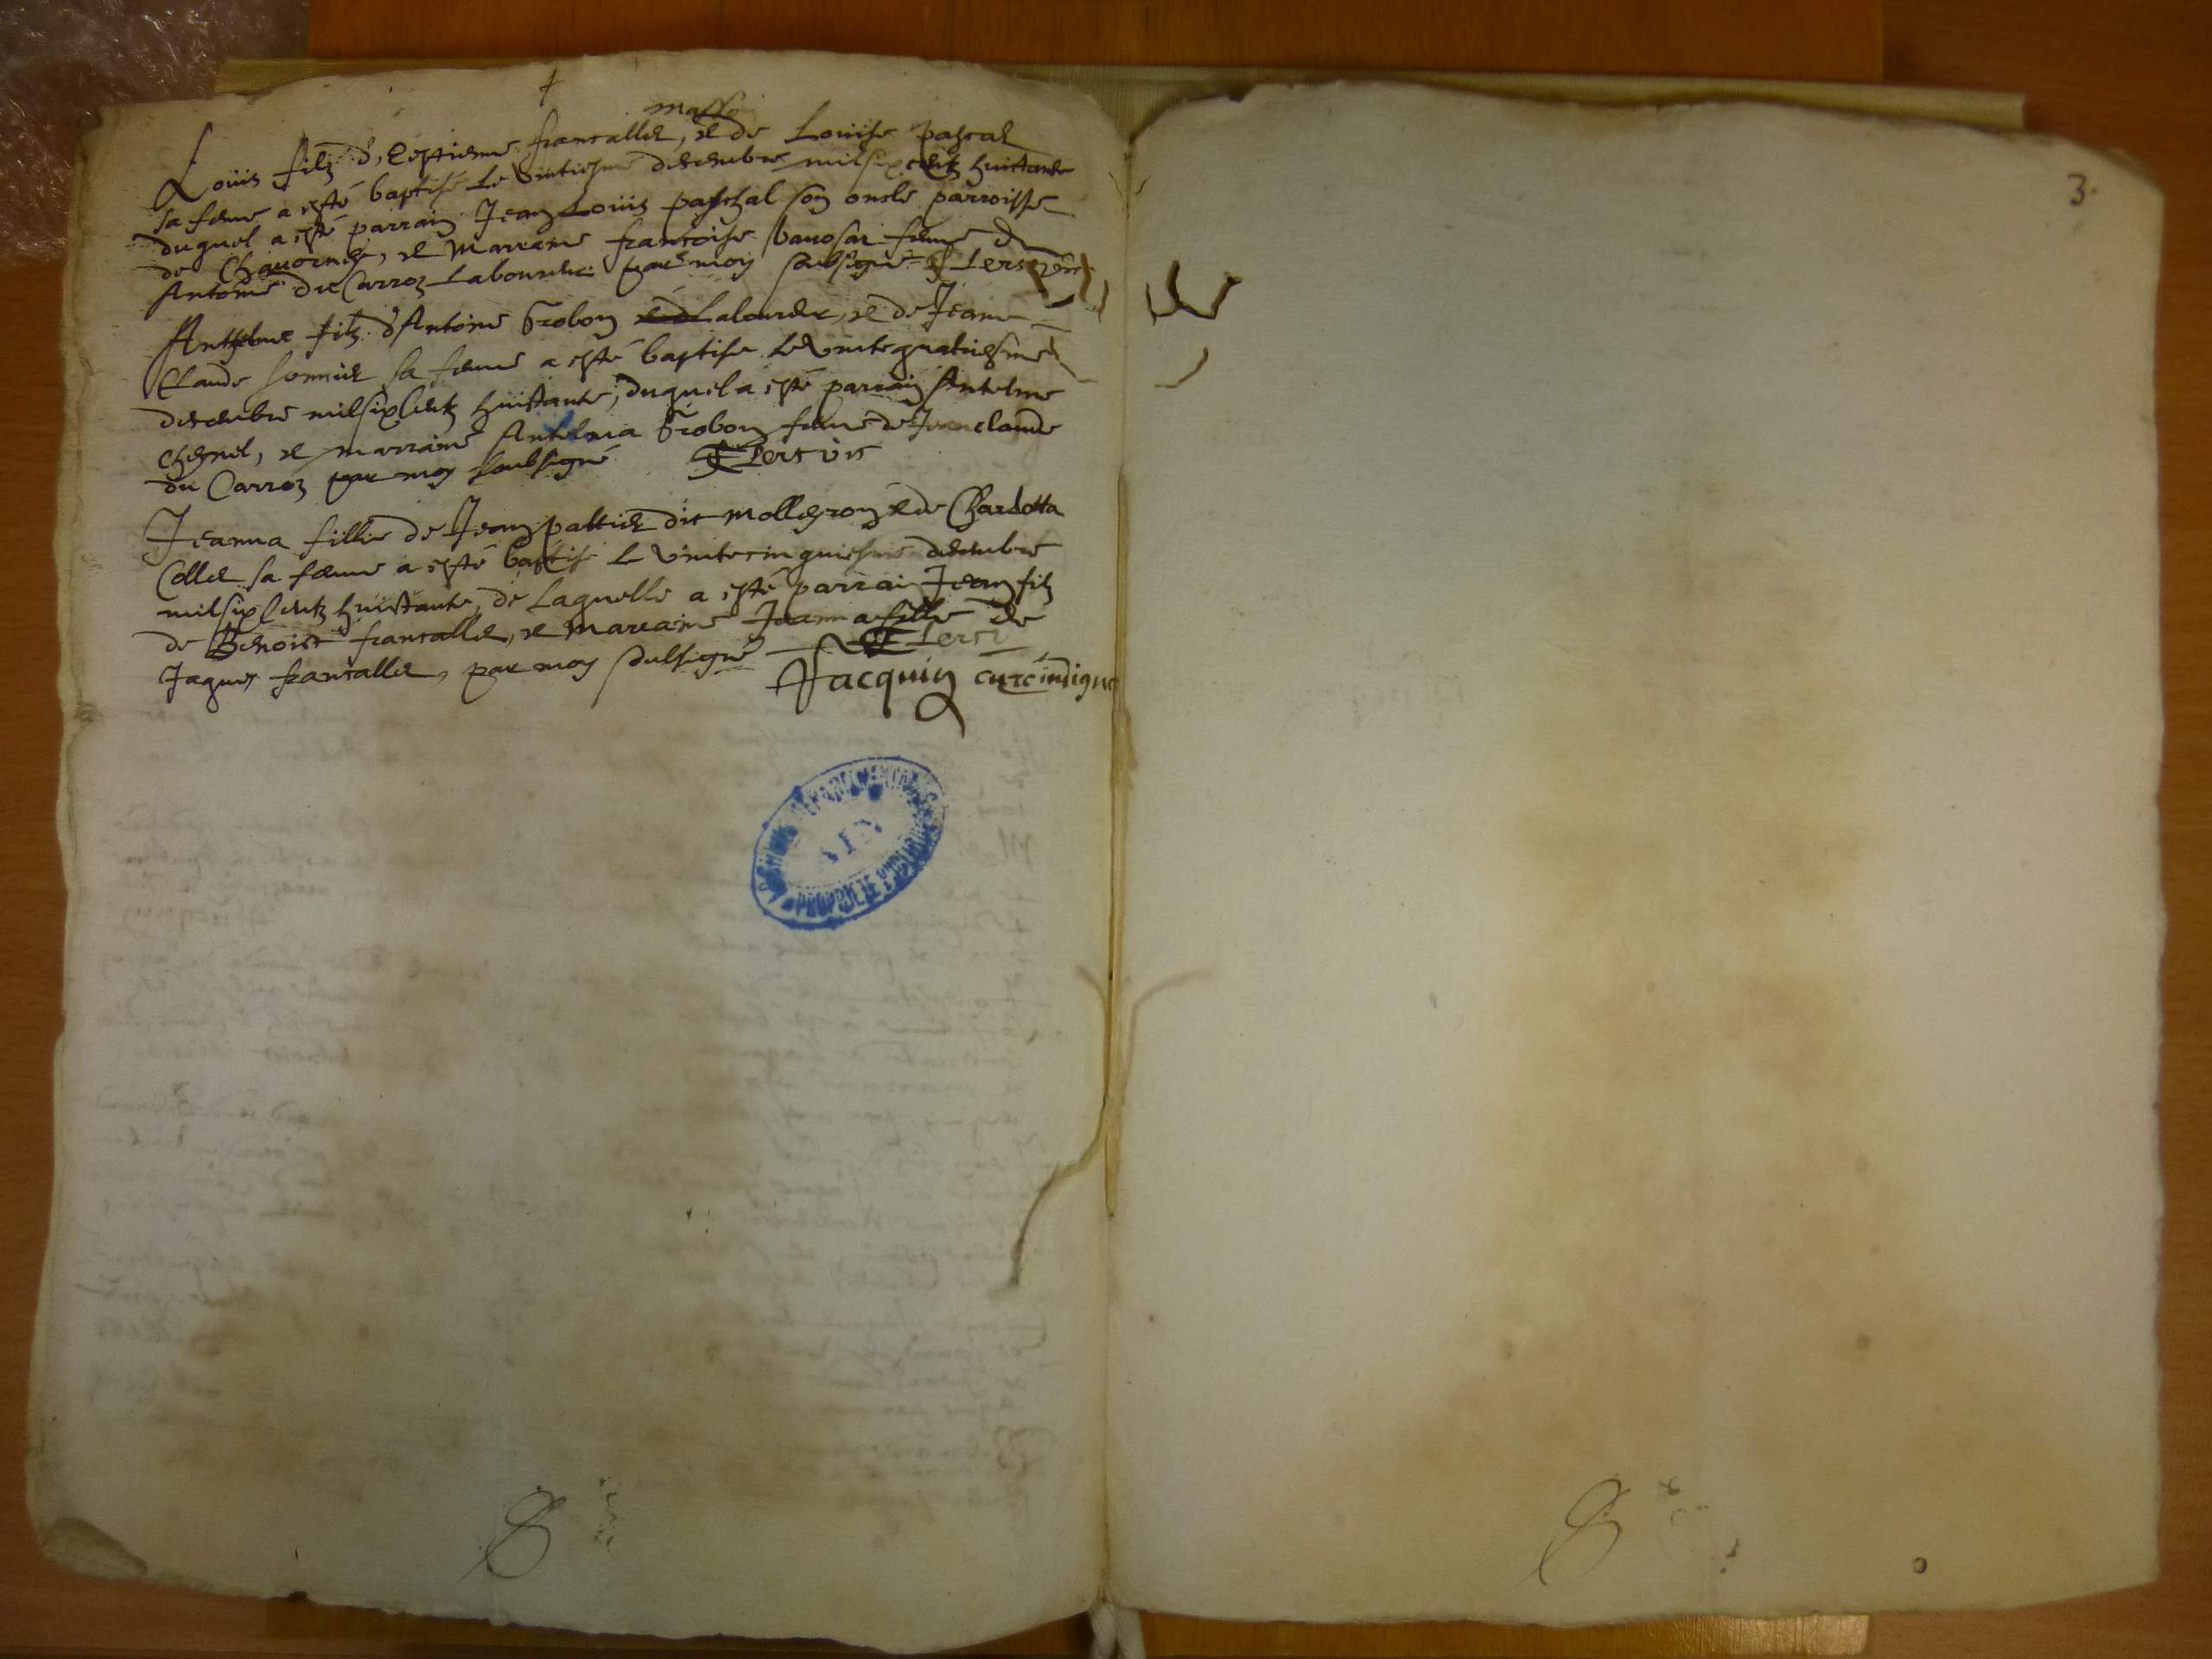 masson
Louis filz d'Estienne francallet, et de Louise pascal
sa feme a esté baptisé le vintiesme decembre mil six centz huictante
duquel a esté parrain Jean Louis paschal son oncle parroisse
de et Marraine francoise feme d
Antoine du Carroz Laboureur par moy soubsigné
Anthelme filz d'Antoine Trobon Laboureur, et de Jeanne
Claude sa feme a esté baptisé le vintequatriesme
decembre mil six centz huictante, duquel a esté parrain Antelme
et marraine Antelma Trobon feme de Jean claude
du Carroz par moy soubsigné
Jeanna fillie de Jean pattier dit molleron et de Charlotta
Collet sa feme a esté baptisé le vintecinquiesme decembre
mil six centz huictante, de Laquelle a esté parrain Jean filz
de Benoict francallet, et Marraine Jeanna fille de
Jaques francallet, par moy soubsigné
Jacquin curé indigne
ARCHIVES DEPARTEMENTALES
AIN
PROPRIETE PUBLIQUE
3.